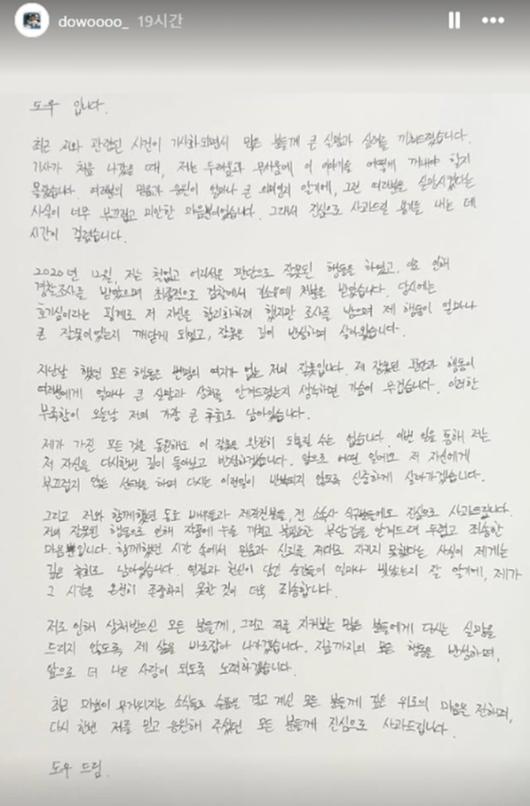 dowoooo_ 19시간
도우 입니다.
최근 저와 관련된 사건이 기사화되면서 많은 분들께 큰 실망과 심려를 끼쳐드렸습니다.
기사가 처음 나갔을 때, 저는 두려움과 무서움에 이 이야기를 어떻게 꺼내야 할지
몰랐습니다. 여러분의 믿음과 응원이 얼마나 큰 의미였는지 알기에, 그런 여러분을 실망시켰다는
사실이 너무 부끄럽고 미안한 마음뿐이었습니다. 그래서 진심으로 사과드릴 용기를 내는 데
시간이 걸렸습니다.
2020년 12월, 저는 철없고 어리석은 판단으로 잘못된 행동을 하였고, 이로 인해
경찰조사를 받았으며 최종적으로 검찰에서 기소유예 처분을 받았습니다. 당시에는
호기심이라는 핑계로 저 자신을 합리화하려 했지만 조사를 받으며 제 행동이 얼마나
큰 잘못이었는지 깨닫게 되었고, 잘못을 깊이 반성하며 살아왔습니다.
지난날 했던 모든 행동은 변명의 여지가 없는 저의 잘못입니다. 제 잘못된 판단과 행동이
여러분에게 얼마나 큰 실망과 상처를 안겨드렸는지 생각하면 가슴이 무겁습니다. 이러한
부족함이 오늘날 저의 가장 큰 후회로 남아있습니다.
제가 가진 모든 것을 동원해도 이 잘못을 완전히 되돌릴 수는 없습니다. 이번 일을 통해 저는
저 자신을 다시한번 깊이 돌아보고 반성하겠습니다. 앞으로 어떤 일에도 저 자신에게
부끄럽지 않은 선택을 하며 다시는 이런일이 반복되지 않도록 신중하게 살아가겠습니다.
그리고 저와 함께했던 동료 배우들과 제작진분들, 전 소속사 식구분들에도 진심으로 사과드립니다.
저의 잘못된 행동으로 인해 작품에 누를 끼치고 불필요한 부담감을 안겨드려 무겁고 죄송한
마음뿐입니다. 함께했던 시간 속에서 믿음과 신뢰를 제대로 지키지 못했다는 사실이 제게는
깊은 후회로 남아있습니다. 열정과 헌신이 담긴 순간들이 얼마나 빛났는지 잘 알기에, 제가
그 시간을 온전히 존중하지 못한 것이 더욱 죄송합니다.
저로 인해 상처받으신 모든 분들께, 그리고 저를 지켜보는 많은 분들에게 다시는 실망을
드리지 않도록 제 삶을 바로잡아 나가겠습니다. 지금까지의 모든 행동을 반성하며,
앞으로 더 나은 사람이 되도록 노력하겠습니다.
최근 마음이 무거워지는 소식들로 슬픔을 겪고 계신 모든 분들께 깊은 위로의 마음을 전하며,
다시 한번 저를 믿고 응원해 주셨던 모든 분들께 진심으로 사과드립니다.
도우 드림.